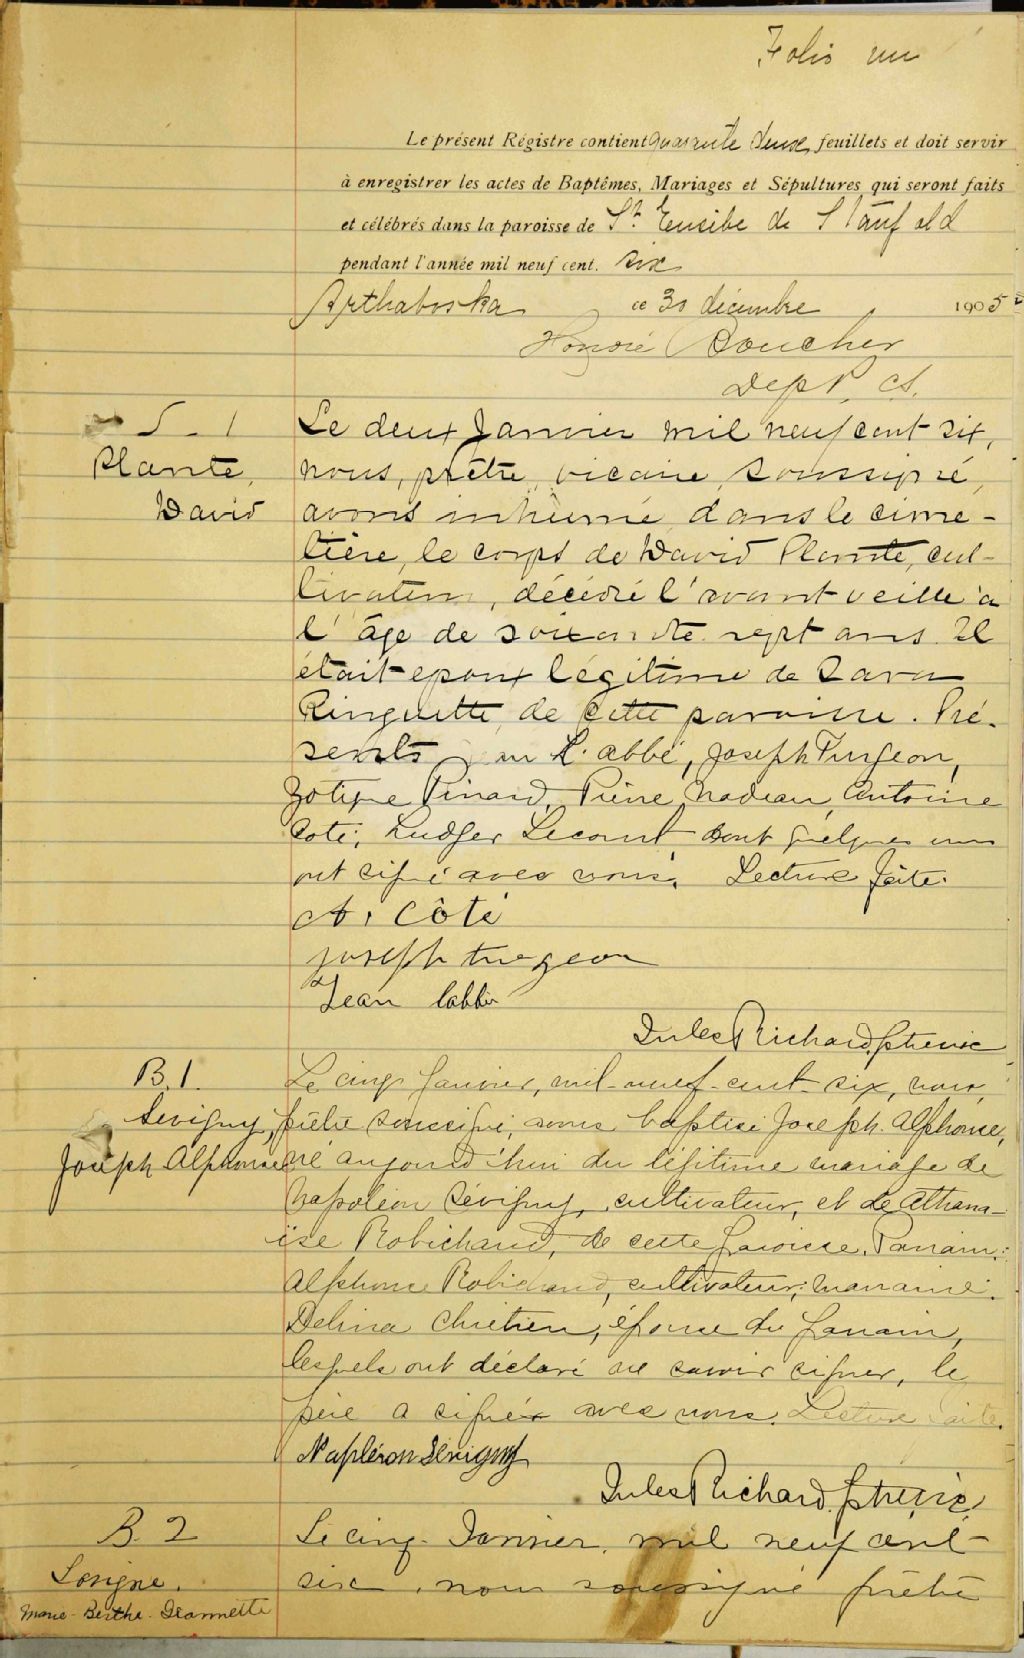 Folio un
Le présent Régistre contient quarante deux feuillets et doit servir
à enregistrer les actes de Baptêmes, Mariages et Sépultures qui seront faits
et célébrés dans la paroisse de St. Eusèbe de Stanfold
pendant l'année mil neuf cent. six
Arthabaska ce 30 décembre 1905
Honoré Boucher
Dept P. C.S.
S-1
Plante,
David
Le deux Janvier mil neuf cent six,
nous, prêtre, vicaire, soussigné,
avons inhumé dans le cime-
tière, le corps de David Plante, cul-
tivateur, décédé l'avant veille à
l'âge de soixante sept ans. Il
était epoux légitime de Sara
Ringuette, de cette paroisse. Pré-
sents L'abbé, Joseph Turgeon,
Zotique Pinard, Pierre Nadeau, Antoine
Coté, Ludger Lecomt dont quelques uns
ont signé avec nous. Lecture faite.
A. Côté
joseph turgeon
Jean labbé
Jules Richard, ptre vic
B.1.
Sevigny,
Joseph Alphonse
Le cinq Janvier, mil-neuf-cent-six, nous,
prêtre soussigné, avons baptisé Joseph Alphonse,
né aujourd'hui du légitime mariage de
Napoléon Sévigny, cultivateur, et de Athana-
ïse Robichaud, de cette paroisse. Parrain:
Alphonse Robichaud, cultivateur; marraine:
Delina Chretien, épouse du parrain,
lesquels ont déclaré ne savoir signer, le
père a signé avec nous. Lecture faite.
Napléron Sévigny
Jules Richard, ptre, vic,
B. 2
Lavigne.
Marie-Berthe-Jeannette
Le cinq Janvier, mil neuf cent
six, nous soussigné prêtre